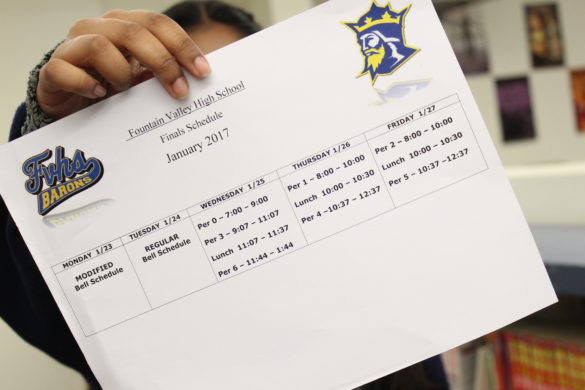 Fountain Valley High School
Finals Schedule
January 2017
Fvhs
BARONS
MONDAY 1/23
MODIFIED
Bell Schedule
TUESDAY 1/24
REGULAR
Bell Schedule
WEDNESDAY 1/25
Per 0 – 7:00 – 9:00
Per 3 – 9:07 – 11:07
Lunch 11:07 – 11:37
Per 6 – 11:44 – 1:44
THURSDAY 1/26
Per 1 – 8:00 – 10:00
Lunch 10:00 – 10:30
Per 4 –10:37 – 12:37
FRIDAY 1/27
Per 2 – 8:00 – 10:00
Lunch 10:00 – 10:30
Per 5 – 10:37 –12:37